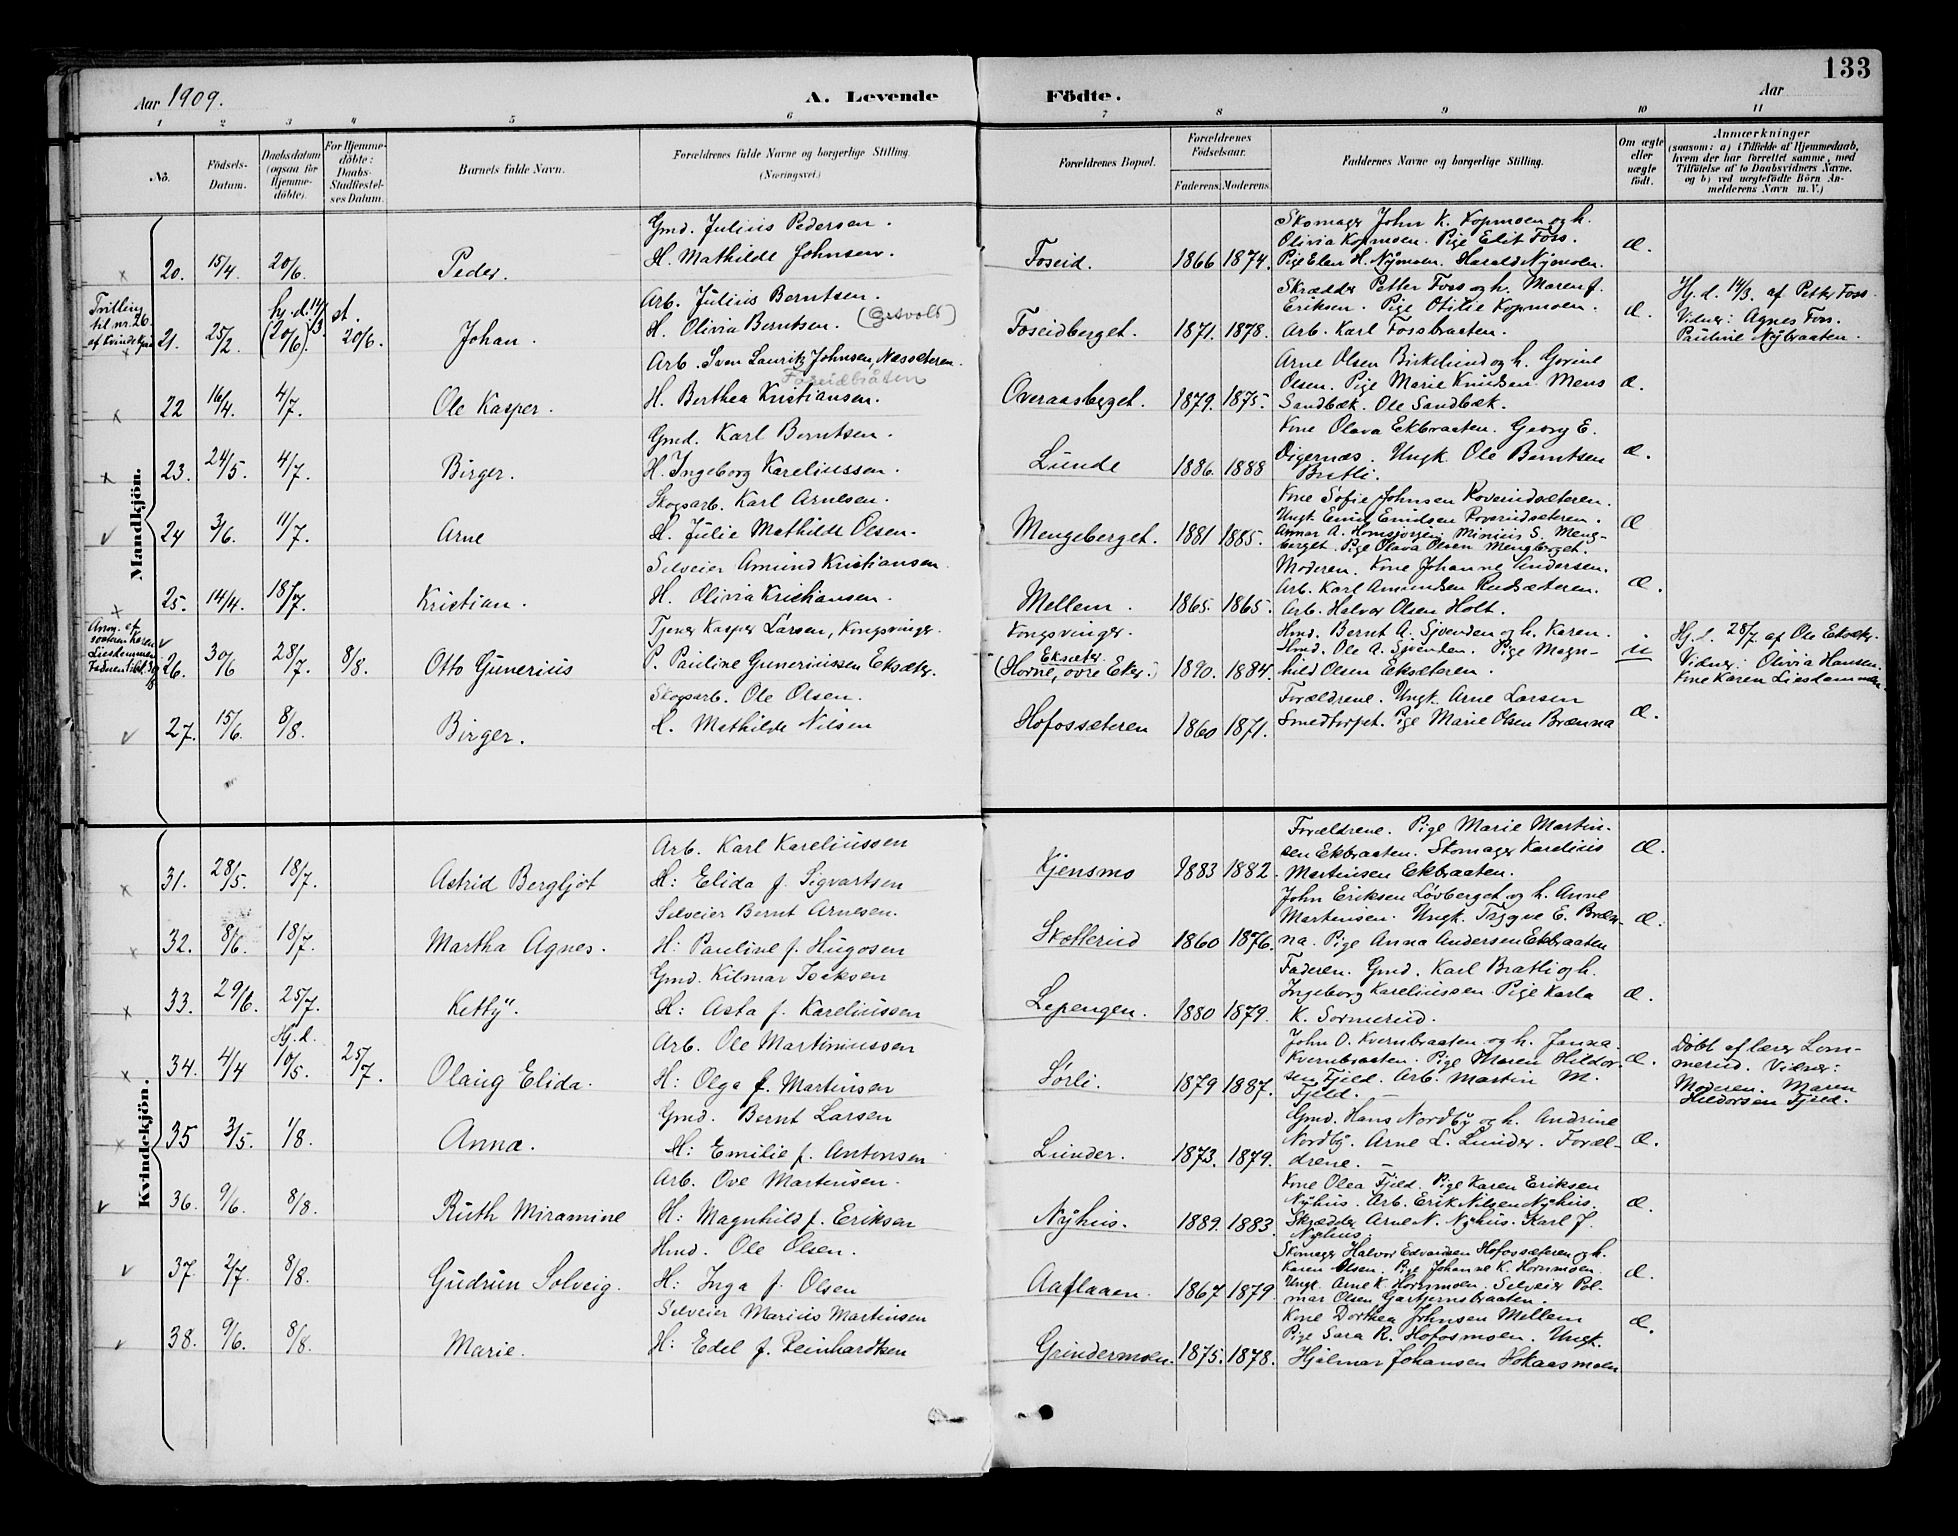 133
Aar 1909.
A. Levende
Födte.
Aar
1 2 3 4 5 6 7 8 9 10 11
No.
Födsels-Datum.
Daabsdatum (ogsaa for Hjemme-döbte).
For Hjemme-döbte: Daabs-Stadfæstel-ses Datum.
Barnets fulde Navn.
Forældrenes fulde Navne og borgerlige Stilling.
(Næringsvei.)
Forældrenes Bopæl.
Forældrenes Födselsaar.
Faderens. Moderens.
Faddernes Navne og borgerlige Stilling.
Om ægte eller uægte födt.
Anmærkninger
(saasom: a) i Tilfælde af Hjemmedaab, hvem der har forrettet samme, med Tilföielse af to Daabsvidners Navne, og b) ved uægtefödte Börn An-melderens Navn m. V.)
Mandkjön.
Gmd. Julius Pedersen.
20. 15/4. 20/6. Peder. H. Mathilde Johnsen.
Foseid. 1866 1874.
Skomager John K. Kopmoen og h.
Olivia Kopmoen. Pige Elit Foss.
Pige Elen H. Nymoen. Harald Nymoen.
Æ.
Tvilling til nr. 26. af Kvindekjøn
Arb. Julius Berntsen.
21. 25/2. hj. d. 14/3 (20/6). st. 20/6. Johan. H. Olivia Berntsen. (Grsvold)
Foseidberget. 1871. 1878.
Skrædder Petter Foss og h. Maren f.
Eriksen. Pige Otilie Kopmoen.
Arb. Karl Fossbraaten.
Æ.
Hj. d. 14/3. af Petter Foss.
Vidner: Agnes Foss.
Pauline Nybraaten.
Arb. Sven Lauritz Johnsen, Næssæteren.
Foseidbråten
22 16/4. 4/7. Ole Kasper. H. Berthea Kristiansen.
Overaasberget. 1879. 1875.
Arne Olsen Birkelund og h. Gorine
Olsen. Pige Marie Knudsen. Mens
Sandbæk. Ole Sandbæk.
Æ.
Gmd. Karl Berntsen.
23. 24/5. 4/7. Birger. H. Ingeborg Kareliussen.
Lunde 1886. 1888
Kone Olava Ekbraaten. Georg E.
Digernæs. Ungk. Ole Berntsen
Bratli.
Æ.
Skogsarb. Karl Arnesen.
24 3/6. 11/7. Arne H. Julie Mathilde Olsen.
Mengeberget. 1881 1885.
Kone Sofie Johnsen Roverudsæteren.
Ungk. Emil Emilsen Roverudsæteren.
Annar A. Homsjorgen. Minius S. Meng-
berget. Pige Olava Olsen Mengberget.
Æ
Selveier Amund Kristiansen
25. 14/4. 18/7. Kristian. H. Olivia Kristiansen.
Mellem. 1865. 1865.
Moderen. Kone Johanne Andersen.
Arb. Karl Amundsen Rudsæteren.
Arb. Halvor Olsen Holt.
Æ.
Tjener Kasper Larsen, Kongsvinger.
26. 30/6 28/7. 8/8. Otto Gunerius P. Pauline Guneriussen Eksæter.
Kongsvinger.
Eksæter.
(Horne, øvre Eker.) 1890. 1884.
Hmd. Bernt A. Sjvenden og h. Karen.
Hmd. Ole A. Sjvenden. Pige Magn-
hild Olsen Eksæteren.
u
Hj. d. 28/7. af Ole Eksæter.
Vidner: Olivia Hansen.
Kone Karen Liesdammen.
Skogsarb. Ole Olsen.
27. 15/6. 8/8. Birger. H. Mathilde Nilsen
Hofossæteren 1860 1871.
Forældrene. Ungk. Arne Larsen
Smedtorpet. Pige Marie Olsen Brænna
Æ.
Kvindekjön.
Arb. Karl Kareliussen
31. 28/5. 18/7. Astrid Bergljot H: Elida f. Sigvartsen
Kjensmo 1883 1882.
Forældrene. Pige Marie Martin-
sen Ekbraaten. Skomager Karelius
Martinsen Ekbraaten.
Æ.
Selveier Bernt Arnesen.
32. 8/6. 18/7. Martha Agnes. H: Pauline f. Hugosen
Skætterud 1860 1876.
John Eriksen Løvberget og h. Anne
Martensen. Ungk. Tryggve E. Bræn-
na. Pige Anna Andersen Ekbraaten
Æ.
Gmd. Kilmar Isaksen
33. 29/6. 25/7. Ketty. H: Asta f. Kareliussen
Lepengen. 1880 1879.
Faderen. Gmd. Karl Bratli og h.
Ingeborg Kareliussen. Pige Karla
K. Sormerud.
Æ.
Arb. Ole Martiniussen
34. 4/4 Hj. d. 10/5. 25/7. Olaug Elida. H: Olga f. Martinsen
Sørli. 1879 1887.
John O. Kvernbraaten og h. Janna
Kvernbraaten. Pige Maren Hildor-
sen Fjeld. Arb. Martin M.
Fjeld. –
Æ.
Døbt af lærer Lom-
merud. Vidner:
Moderen. Maren
Hildorsen Fjeld.
Gmd. Bernt Larsen
35 3/5. 1/8. Anna. H: Emilie f. Antonsen
Lunder. 1873. 1879.
Gmd. Hans Nordby og h. Andrine
Nordby. Arne L. Lunder. Foræl-
drene. –
Æ.
Arb. Ove Martinsen.
36. 9/6. 8/8. Ruth Miramine H: Magnhild f. Eriksen
Nyhus. 1889. 1883
Kone Olea Fjeld. Pige Karen Eriksen
Nyhus. Arb. Erik Nilsen Nyhus.
Skrædder Arne N. Nyhus. Karl J.
Nyhus.
Æ.
Hmd. Ole Olsen.
37 2/7. 8/8. Gudrun Solveig. H: Inga f. Olsen
Aaflaaen. 1867 1879
Skomager Halvor Edvardsen Hofossæteren og h.
Karen Olsen. Pige Johanne K. Hornmoen.
Ungk. Arne K. Hornmoen. Selveier Pol-
mar Olsen Gartjernsbraaten.
Æ.
Selveier Marius Martinsen
38. 9/6. 8/8. Marie. H: Edel f. Reinhardtsen
Grindermoen. 1875. 1878.
Kone Dorthea Johnsen Mellem
Pige Sara R. Hofosmoen. Ungk.
Hjalmar Johansen Hokaasmoen
Æ.